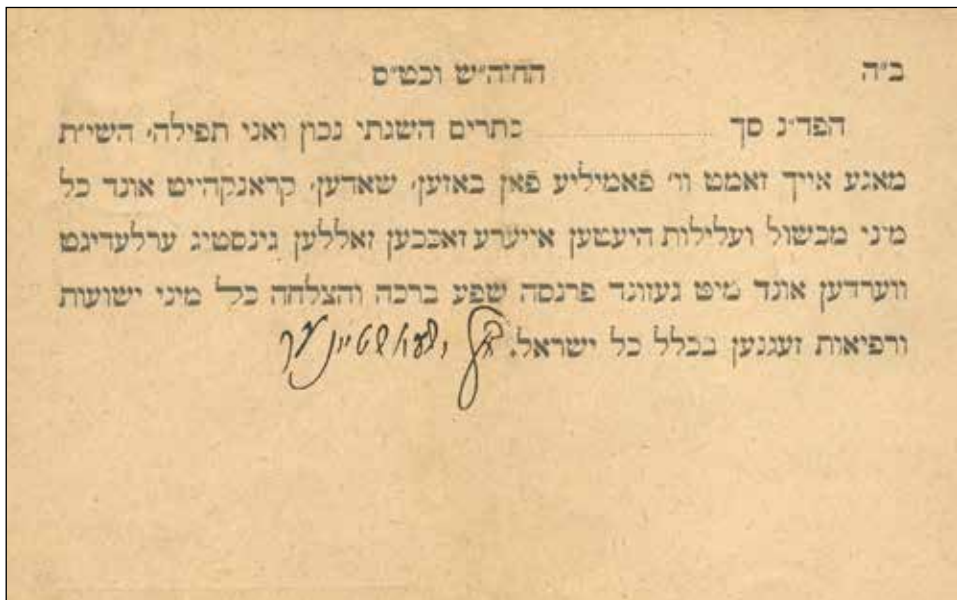 ב״ה החיה״ש וכט״ס
הפד״נ סך ............ כתרים השגתי נכון ואני תפילה, השי״ת
מאגע אייך זאמט וו׳ פאמיליע פאן באזען, שאדען, קראנקהייט אונד כל
מיני מכשול ועלילות היעטען אייערע זאככען זאללען גינסטיג ערלעדיגט
ווערדען אונד מיט געזונד פרנסה שפע ברכה והצלחה כל מיני ישועות
ורפיאות זעגנען בכלל כל ישראל.